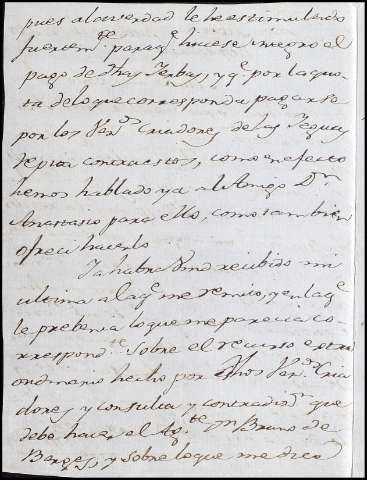 pues al
fuertem.te para q.e hiciese integro el
pago de dhas Yerbas, y q.e por la quo-
ta de lo que corresponda pagarse
por los Sen.s Criadores de las Yeguas
contraestos, como en efecto
hemos hablado ya al Amigo D.n
Anastasio para ello, como tambien
ofreci hacerlo
Ya habra Vmd recibido mi
ultima a la q.e me remito, y en la q.e
le prebenia lo que me parecia co-
rrespond.te sobre el recurso extra
ordinario hecho por dhos Sen.s Cria
dores, y consulta y que
debe hacer el Ag.te D.n Bruno de
y sobre lo que me dice